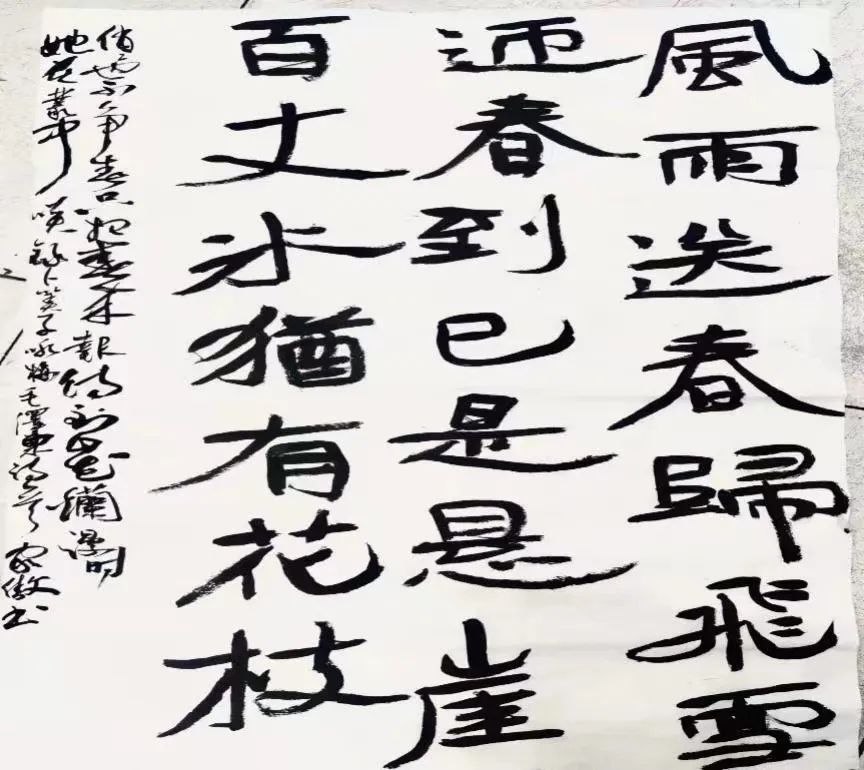 風雨送春歸飛雪
迎春到已是悬崖
百丈冰猶有花枝
俏也不争春只把春来報待到山花爛漫时
她在叢中咲 錄卜算子咏梅毛澤東詩 家傲书